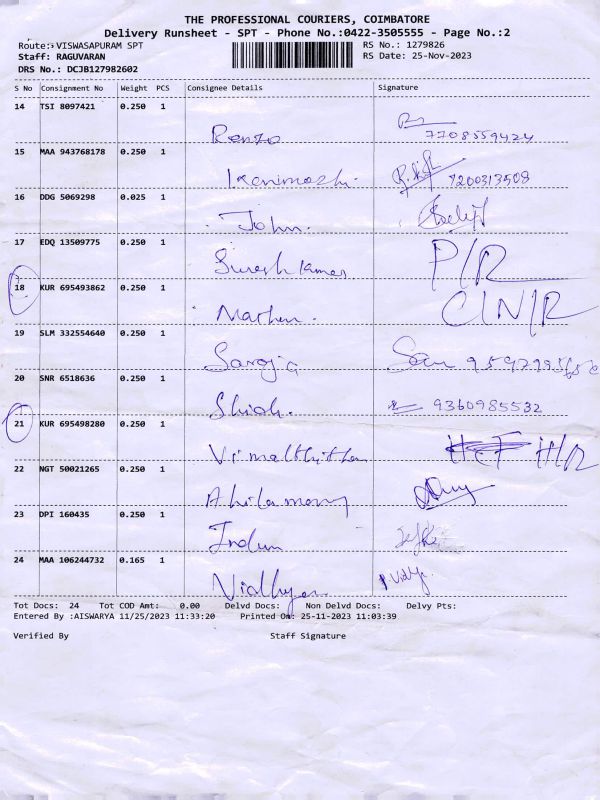 THE PROFESSIONAL COURIERS, COIMBATORE
Delivery Runsheet - SPT - Phone No.:0422-3505555 - Page No.:2
Route: VISWASAPURAM SPT RS No.: 1279826
Staff: RAGUVARAN RS Date: 25-Nov-2023
DRS No.: DCJB127982602
S No Consignment No Weight PCS Consignee Details Signature
14 TSI 8097421 0.250 1
7708559424
15 MAA 943768178 0.250 1
Kanimozhi. 9200313508
16 DDG 5069298 0.025 1
John.
17 EDQ 13509775 0.250 1
Suresh kumar P/R
18 KUR 695493862 0.250 1
C/N/R
19 SLM 332554640 0.250 1
Saroja
20 SNR 6518636 0.250 1
9360985532
21 KUR 695498280 0.250 1
H/R
22 NGT 50021265 0.250 1
23 DPI 160435 0.250 1
24 MAA 106244732 0.165 1
Tot Docs: 24 Tot COD Amt: 0.00 Delvd Docs: Non Delvd Docs: Delvy Pts:
Entered By :AISWARYA 11/25/2023 11:33:20 Printed On: 25-11-2023 11:03:39
Verified By Staff Signature